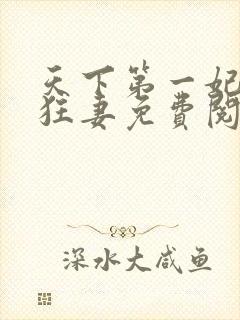 天下第一妃
狂妻免费阅
深水大咸鱼